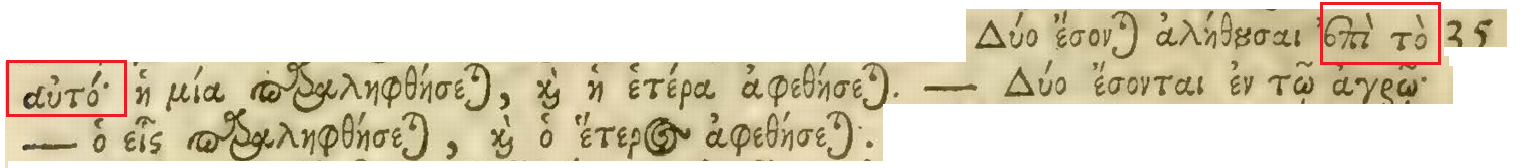 Δύο ἔσονται ἀλήθουσαι ἐπὶ τὸ 35
αὐτό· ἡ μία παραληφθήσεται, καὶ ἡ ἑτέρα ἀφεθήσεται. — Δύο ἔσονται ἐν τῷ ἀγρῷ·
— ὁ εἷς παραληφθήσεται, καὶ ὁ ἕτερος ἀφεθήσεται.